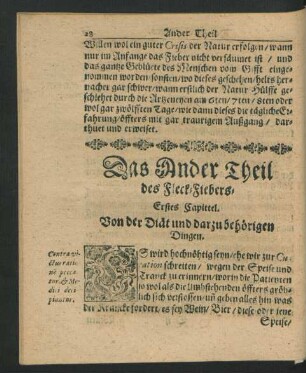 28 Ander Theil
Willen wol ein guter Crisis der Natur erfolgen / wann
nur im Anfange das Fieber nicht versäumet ist / und
das gantze Geblüete des Menschen vom Gifft einge-
nommen worden / sonsten / wo dieses geschehen / helts her-
nacher gar schwer / wann erstlich der Natur Hülffe ge-
schiehet durch die Artzeneyen am 6ten / 7ten / 8ten oder
wol gar zwölfften Tage / wie dann dieses die tägliche Er-
fahrung / öffters mit gar traurigem Außgang / dar-
thuet und erweiset.
Das Ander Theil
des Fleck-Fiebers /
Erstes Capittel.
Von der Diät und darzu behörigen
Dingen.
ES wird hochnöhtig seyn / ehe wir zur Cu-
ration schreiten / wegen der Speise und
Tranck zu erinnern / worin die Patienten
so wol als die Umbstehenden öffters gröb-
lich sich verstossen / uñ geben alles hin was
der Krancke fordert / es sey Wein / Bier / diese oder jene
Speise /
Contra vi-
ctus ratio-
nis